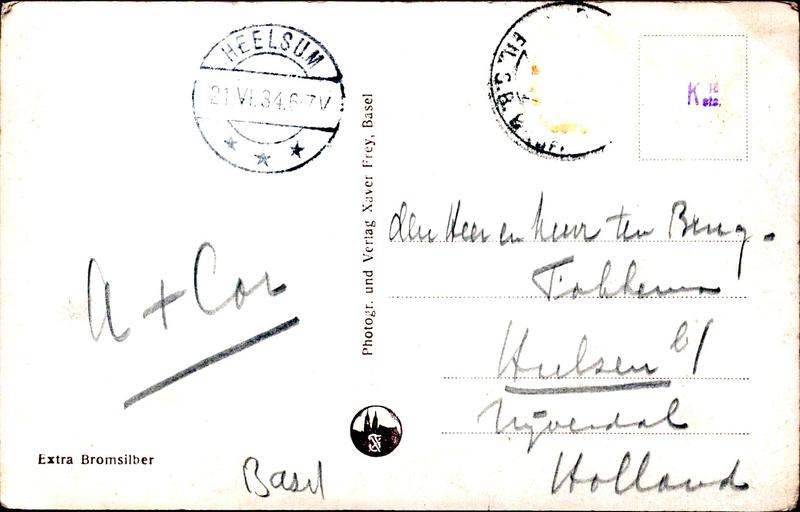 HEELSUM
21 VI.34.6-7V
K
cts.
Photogr. und Verlag Xaver Frey, Basel
den Heer en Mevr ten Berg.
A + Cor
Hulsen b/
Nijverdal
Holland
Extra Bromsilber
Basel